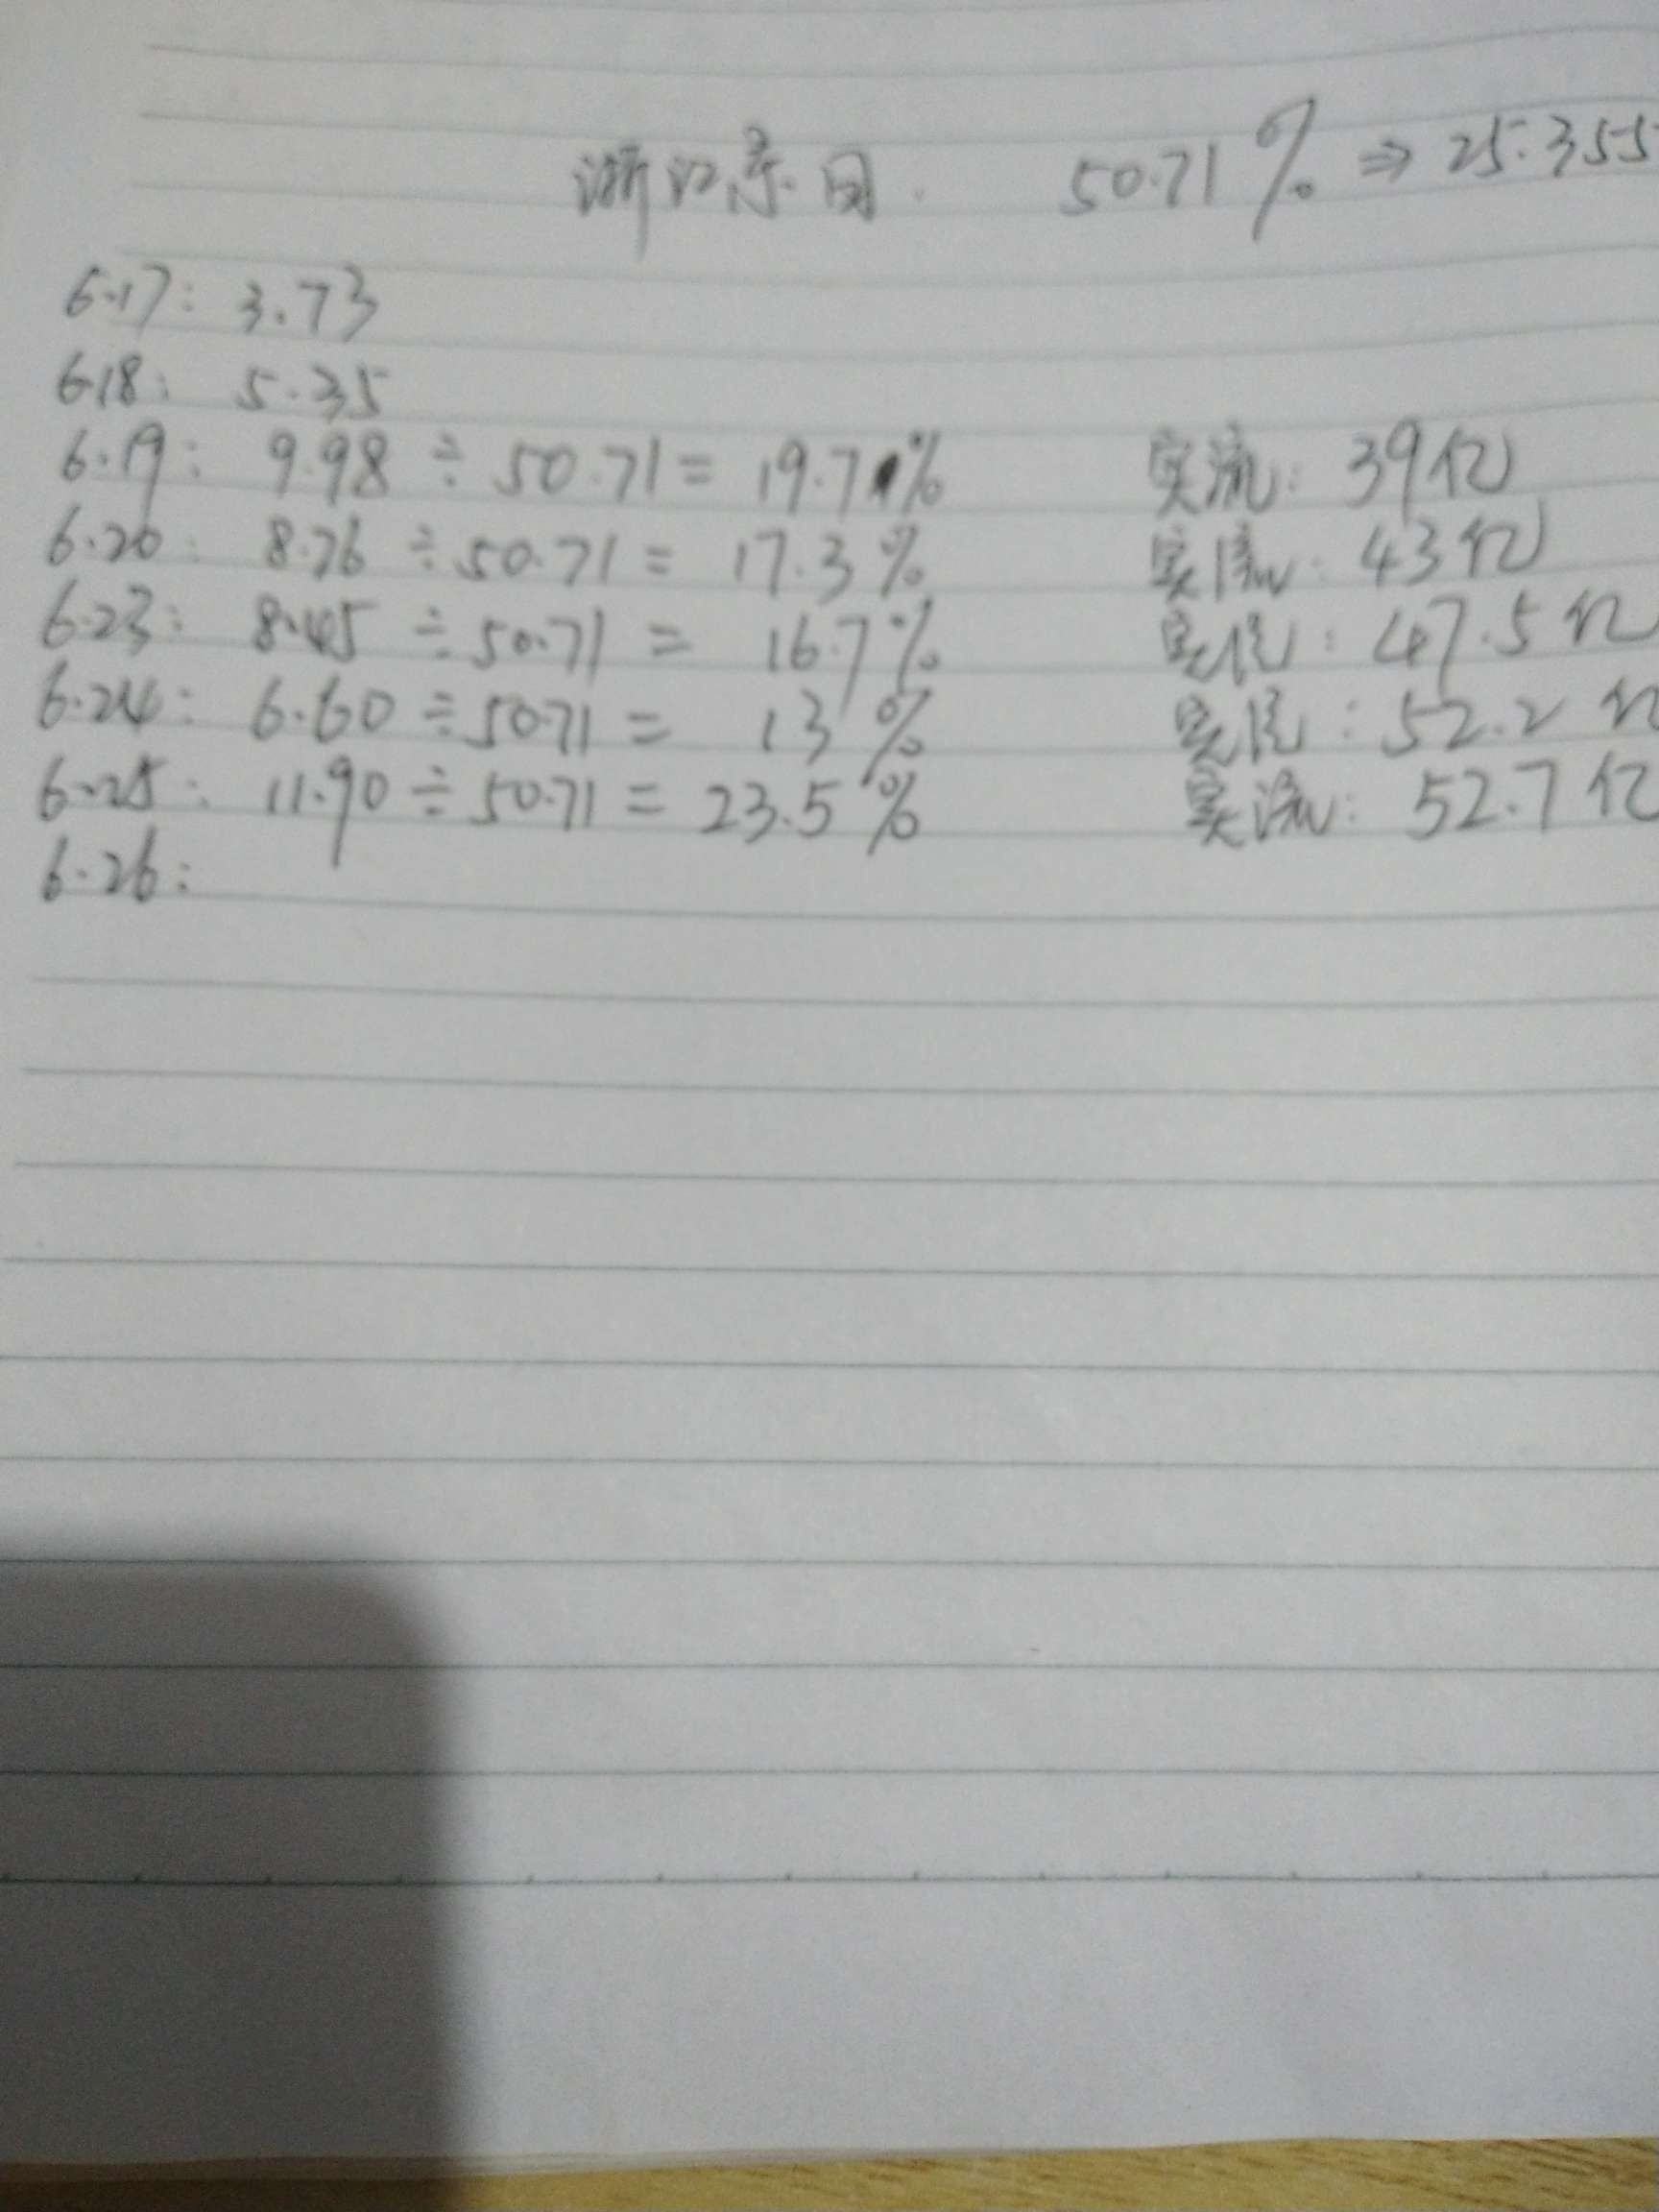 浙江东日. 50.71% ⇒ 25.355
6.17: 3.73
6.18: 5.35
6.19: 9.98 ÷ 50.71 = 19.7% 实流: 39亿
6.20: 8.76 ÷ 50.71 = 17.3% 实流: 43亿
6.23: 8.45 ÷ 50.71 = 16.7% 实流: 47.5亿
6.24: 6.60 ÷ 50.71 = 13% 实流: 52.2亿
6.25: 11.90 ÷ 50.71 = 23.5% 实流: 52.7亿
6.26: